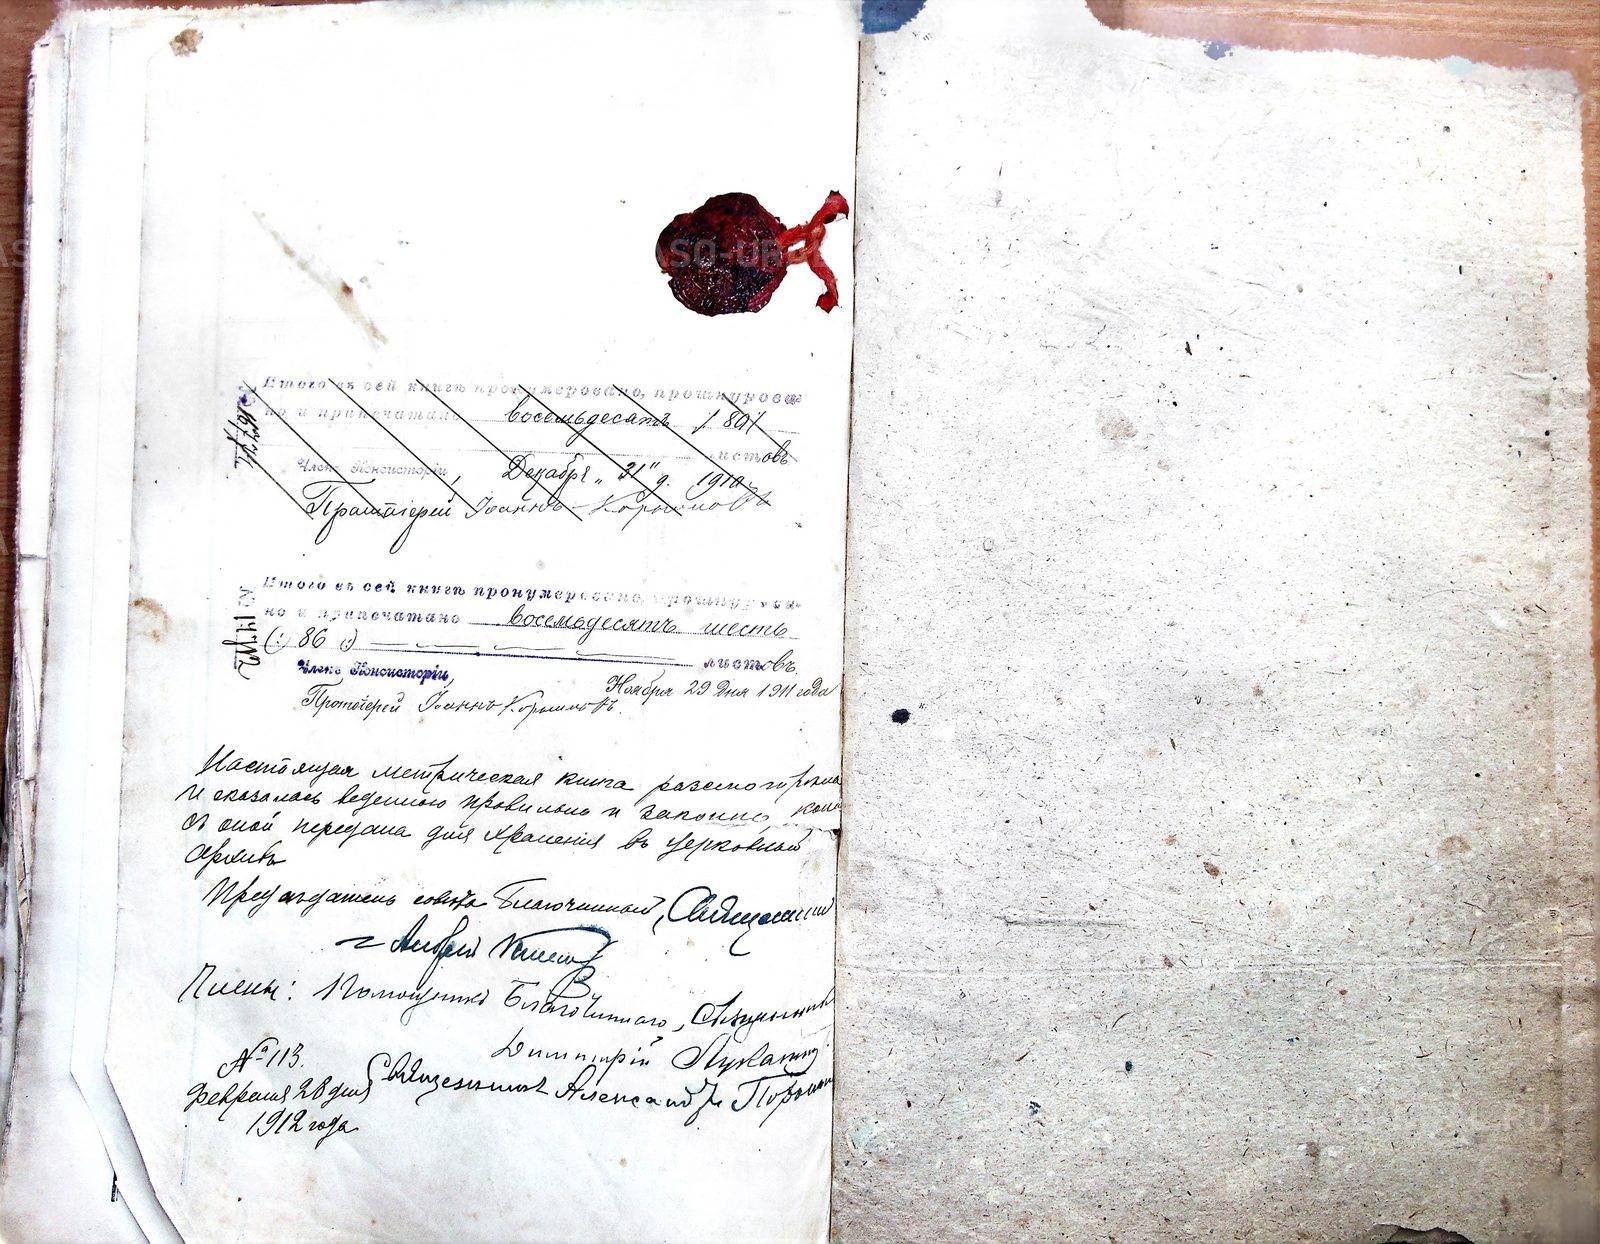 Итого въ сей книгѣ пронумеровано, прошнурова-
но и припечатано восемьдесятъ /. 80 /.
листовъ
Членъ Консисторіи, Декабря „31" д. 1910
Протоіерей Іоаннъ
Итого въ сей книгѣ пронумеровано, прошнурова-
но и припечатано восемьдесятъ шесть
(:) 86 (:)
листовъ.
Членъ Консисторіи,
Ноября 29 дня 1911 года
Протоіерей Іоаннъ
Настоящая метрическая книга разсмотрѣна
и оказалась веденною правильно и законно,
съ оной передана для храненія въ церковный
архивъ
Предсѣдатель совѣта Благочинный, Священникъ
Андрей
Члены: Помощникъ Благочиннаго, Священникъ
Димитрій
№ 113.
Священникъ Александръ
Февраля 28 дня
1912 года